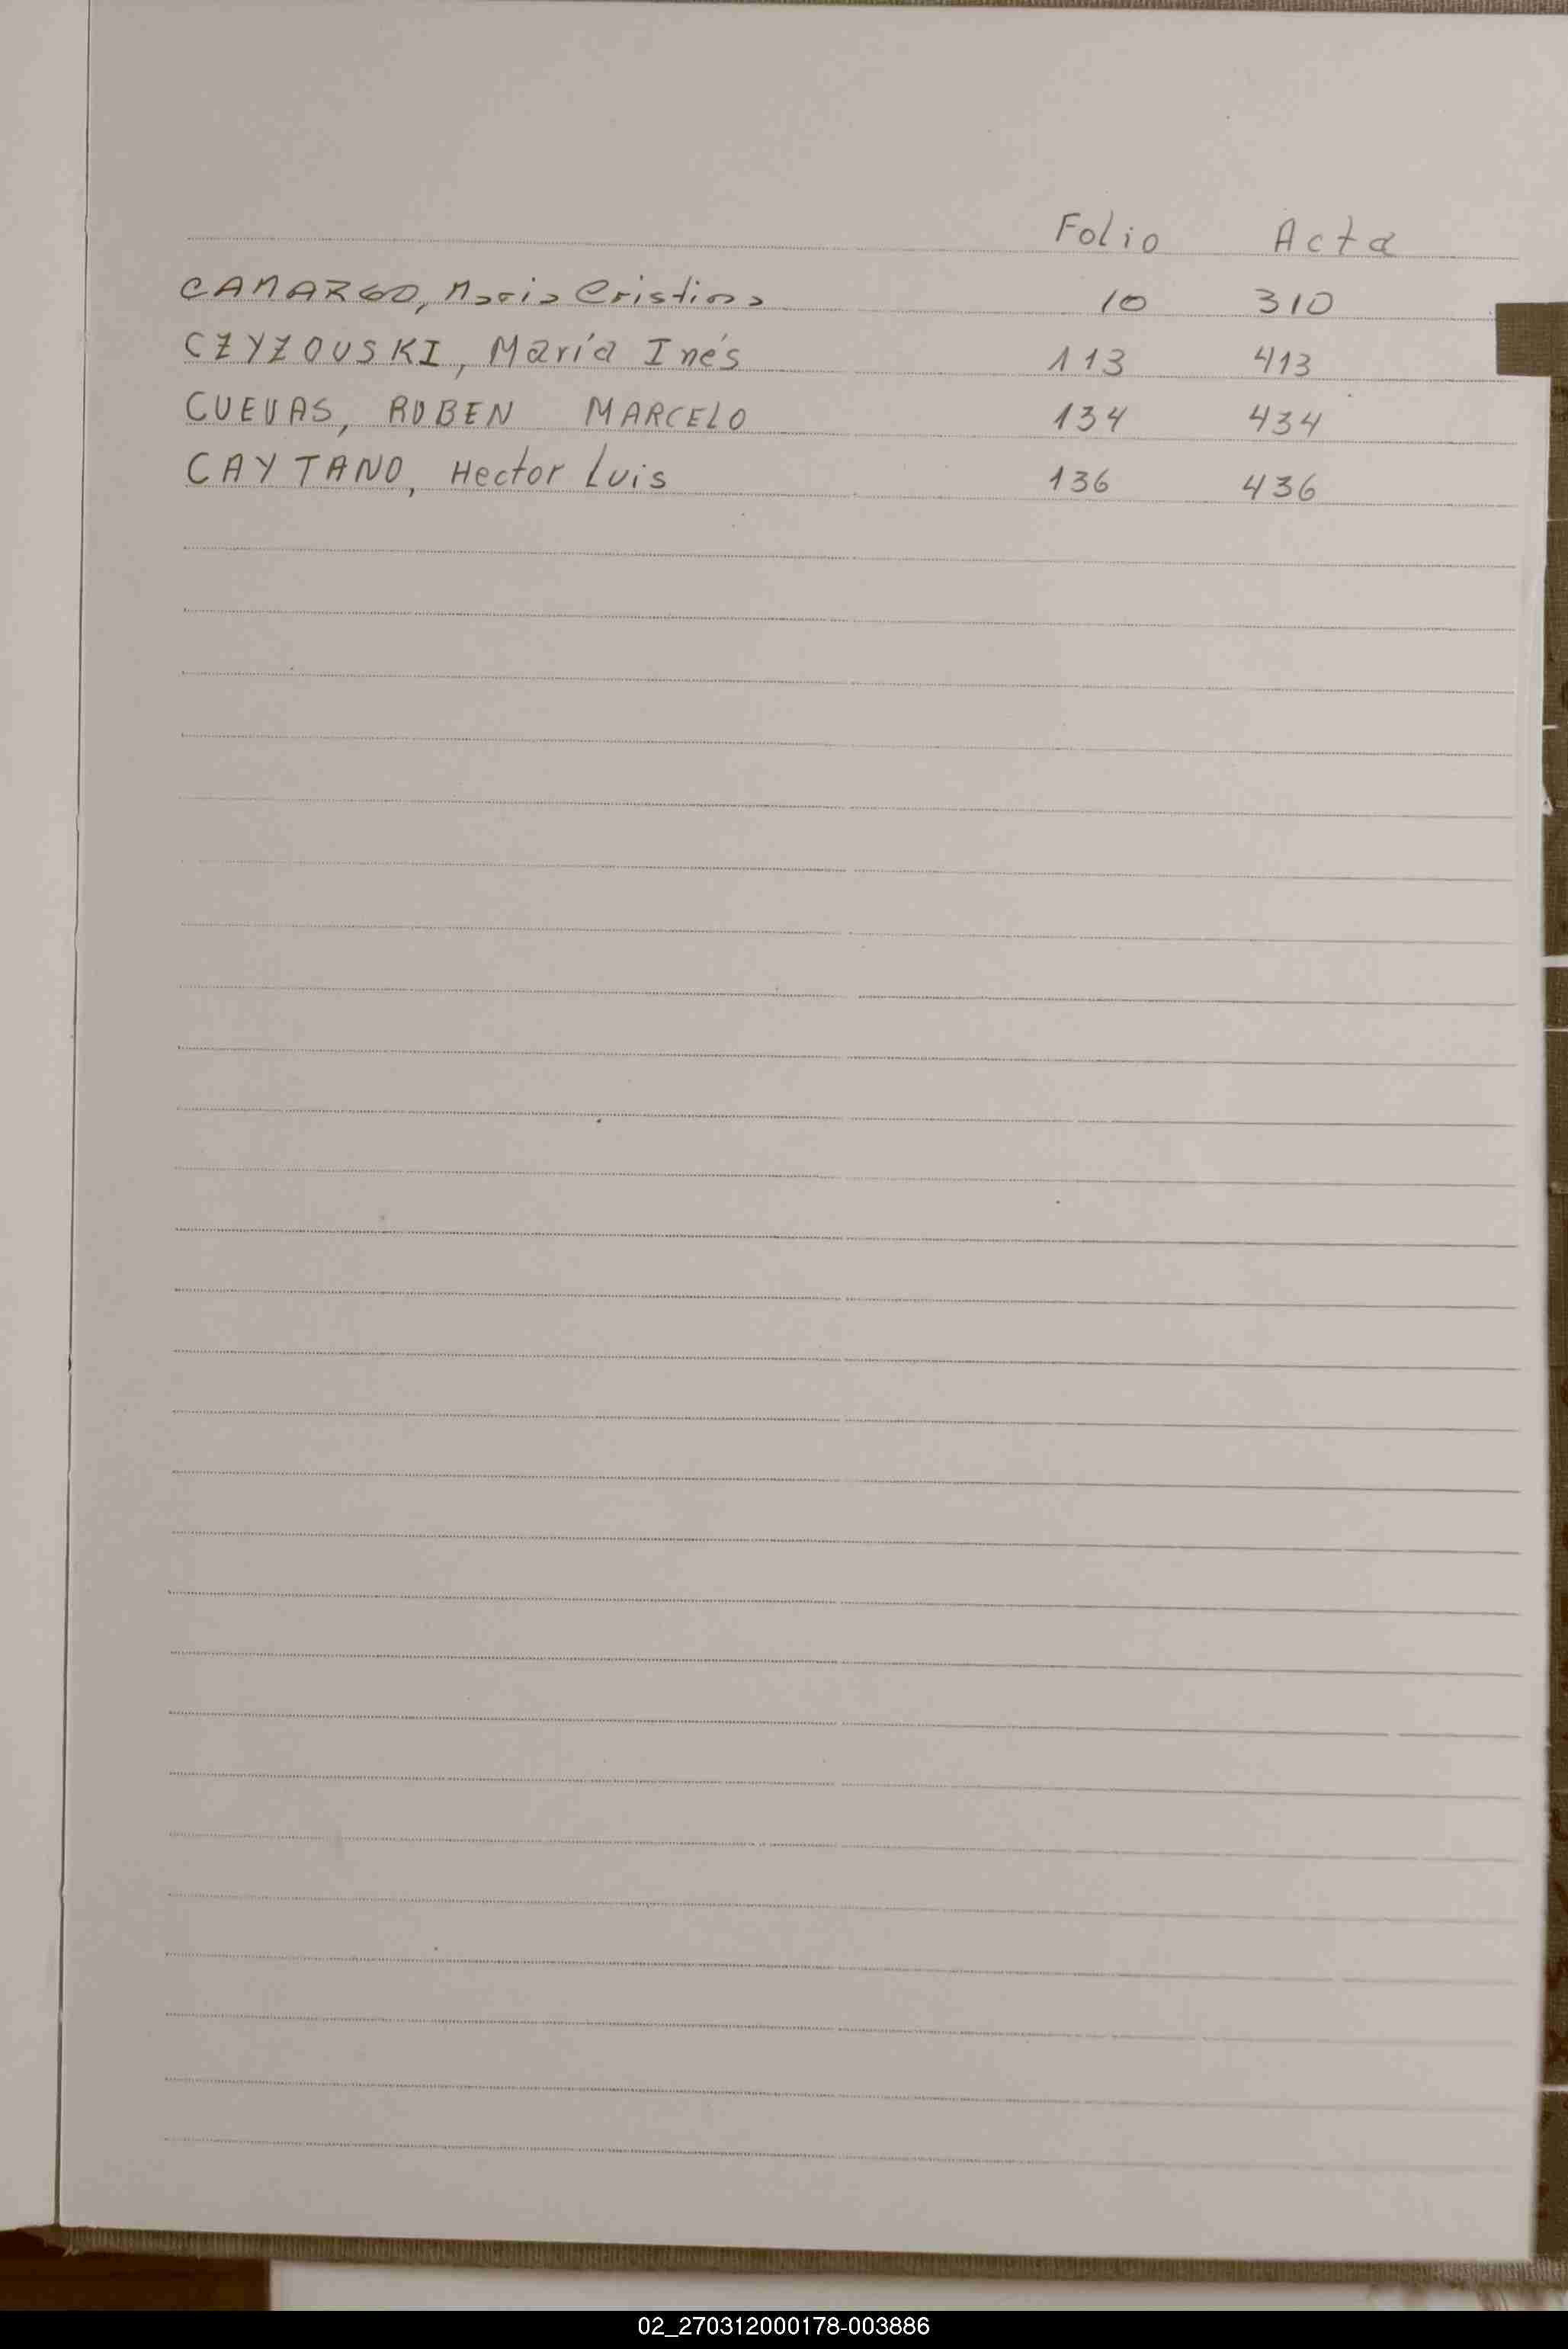 Folio Acta
CAMARGO, Maria Cristina 10 310
CZYZOUSKI, María Inés 113 413
CUEVAS, RUBEN MARCELO 134 434
CAYTANO, Hector Luis 136 436
02_270312000178-003886